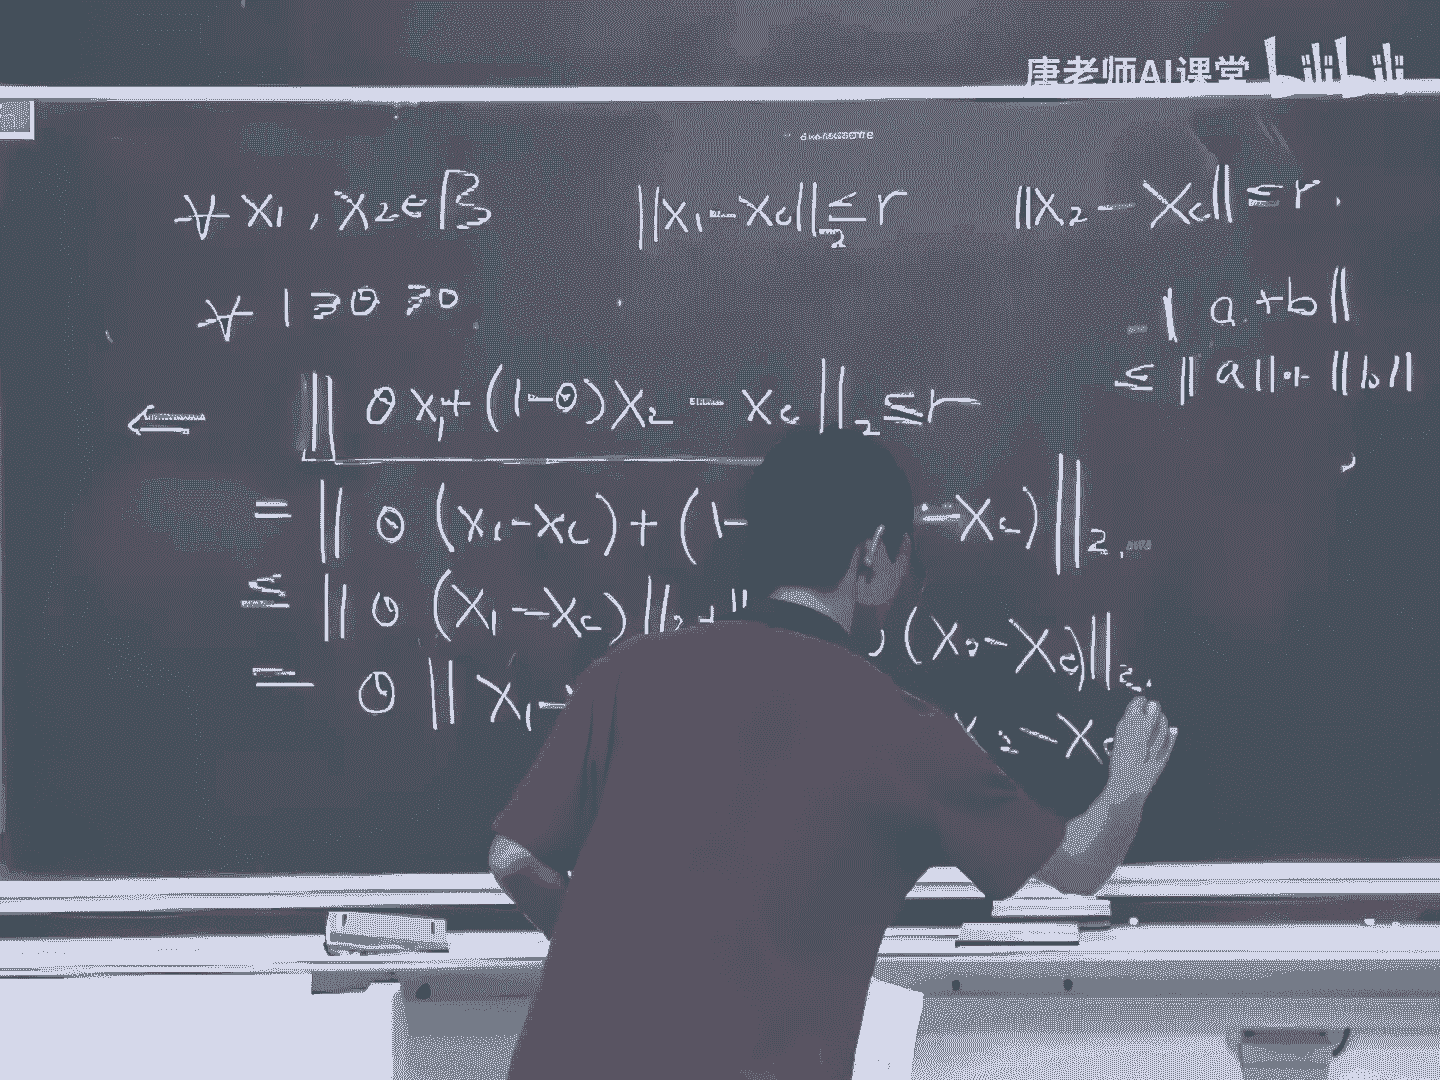 唐老师AI课堂 bilibili
∀ x₁ , x₂ ∈ B ||x₁ - x_c||₂ ≤ r ||x₂ - x_c|| ≤ r .
∀ 1 ≥ θ ≥ 0
|| a + b ||
≤ || a || + || b ||
⇐ || θ x₁ + (1-θ) x₂ - x_c ||₂ ≤ r
= || θ (x₁ - x_c) + (1- - x_c) ||₂ .
≤ || θ (x₁ - x_c) ||₂ + || (x₂ - x_c) ||₂ .
= θ || x₁ - x₂ - x_c